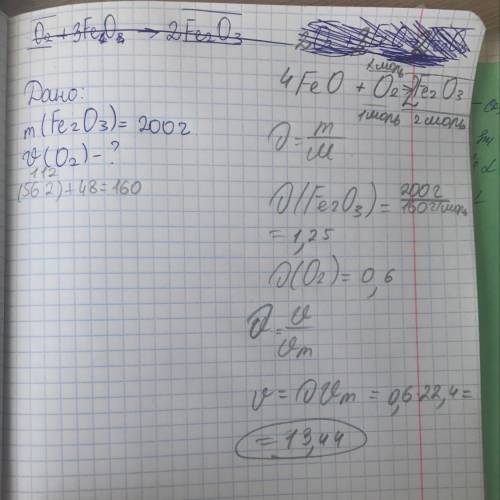 O₂ + 3Fe₂O₃ → 2Fe₂O₃
Дано:
m(Fe₂O₃) = 200г
V(O₂) - ?
112
(56 2) + 48 = 160
x моль
4FeO + O₂ → 2Fe₂O₃
1 моль 2 моль
ν = m/M
ν(Fe₂O₃) = 200г/160г/моль
= 1,25
ν(O₂) = 0,6
ν = V/Vm
V = νVm = 0,6·22,4 =
= 13,44